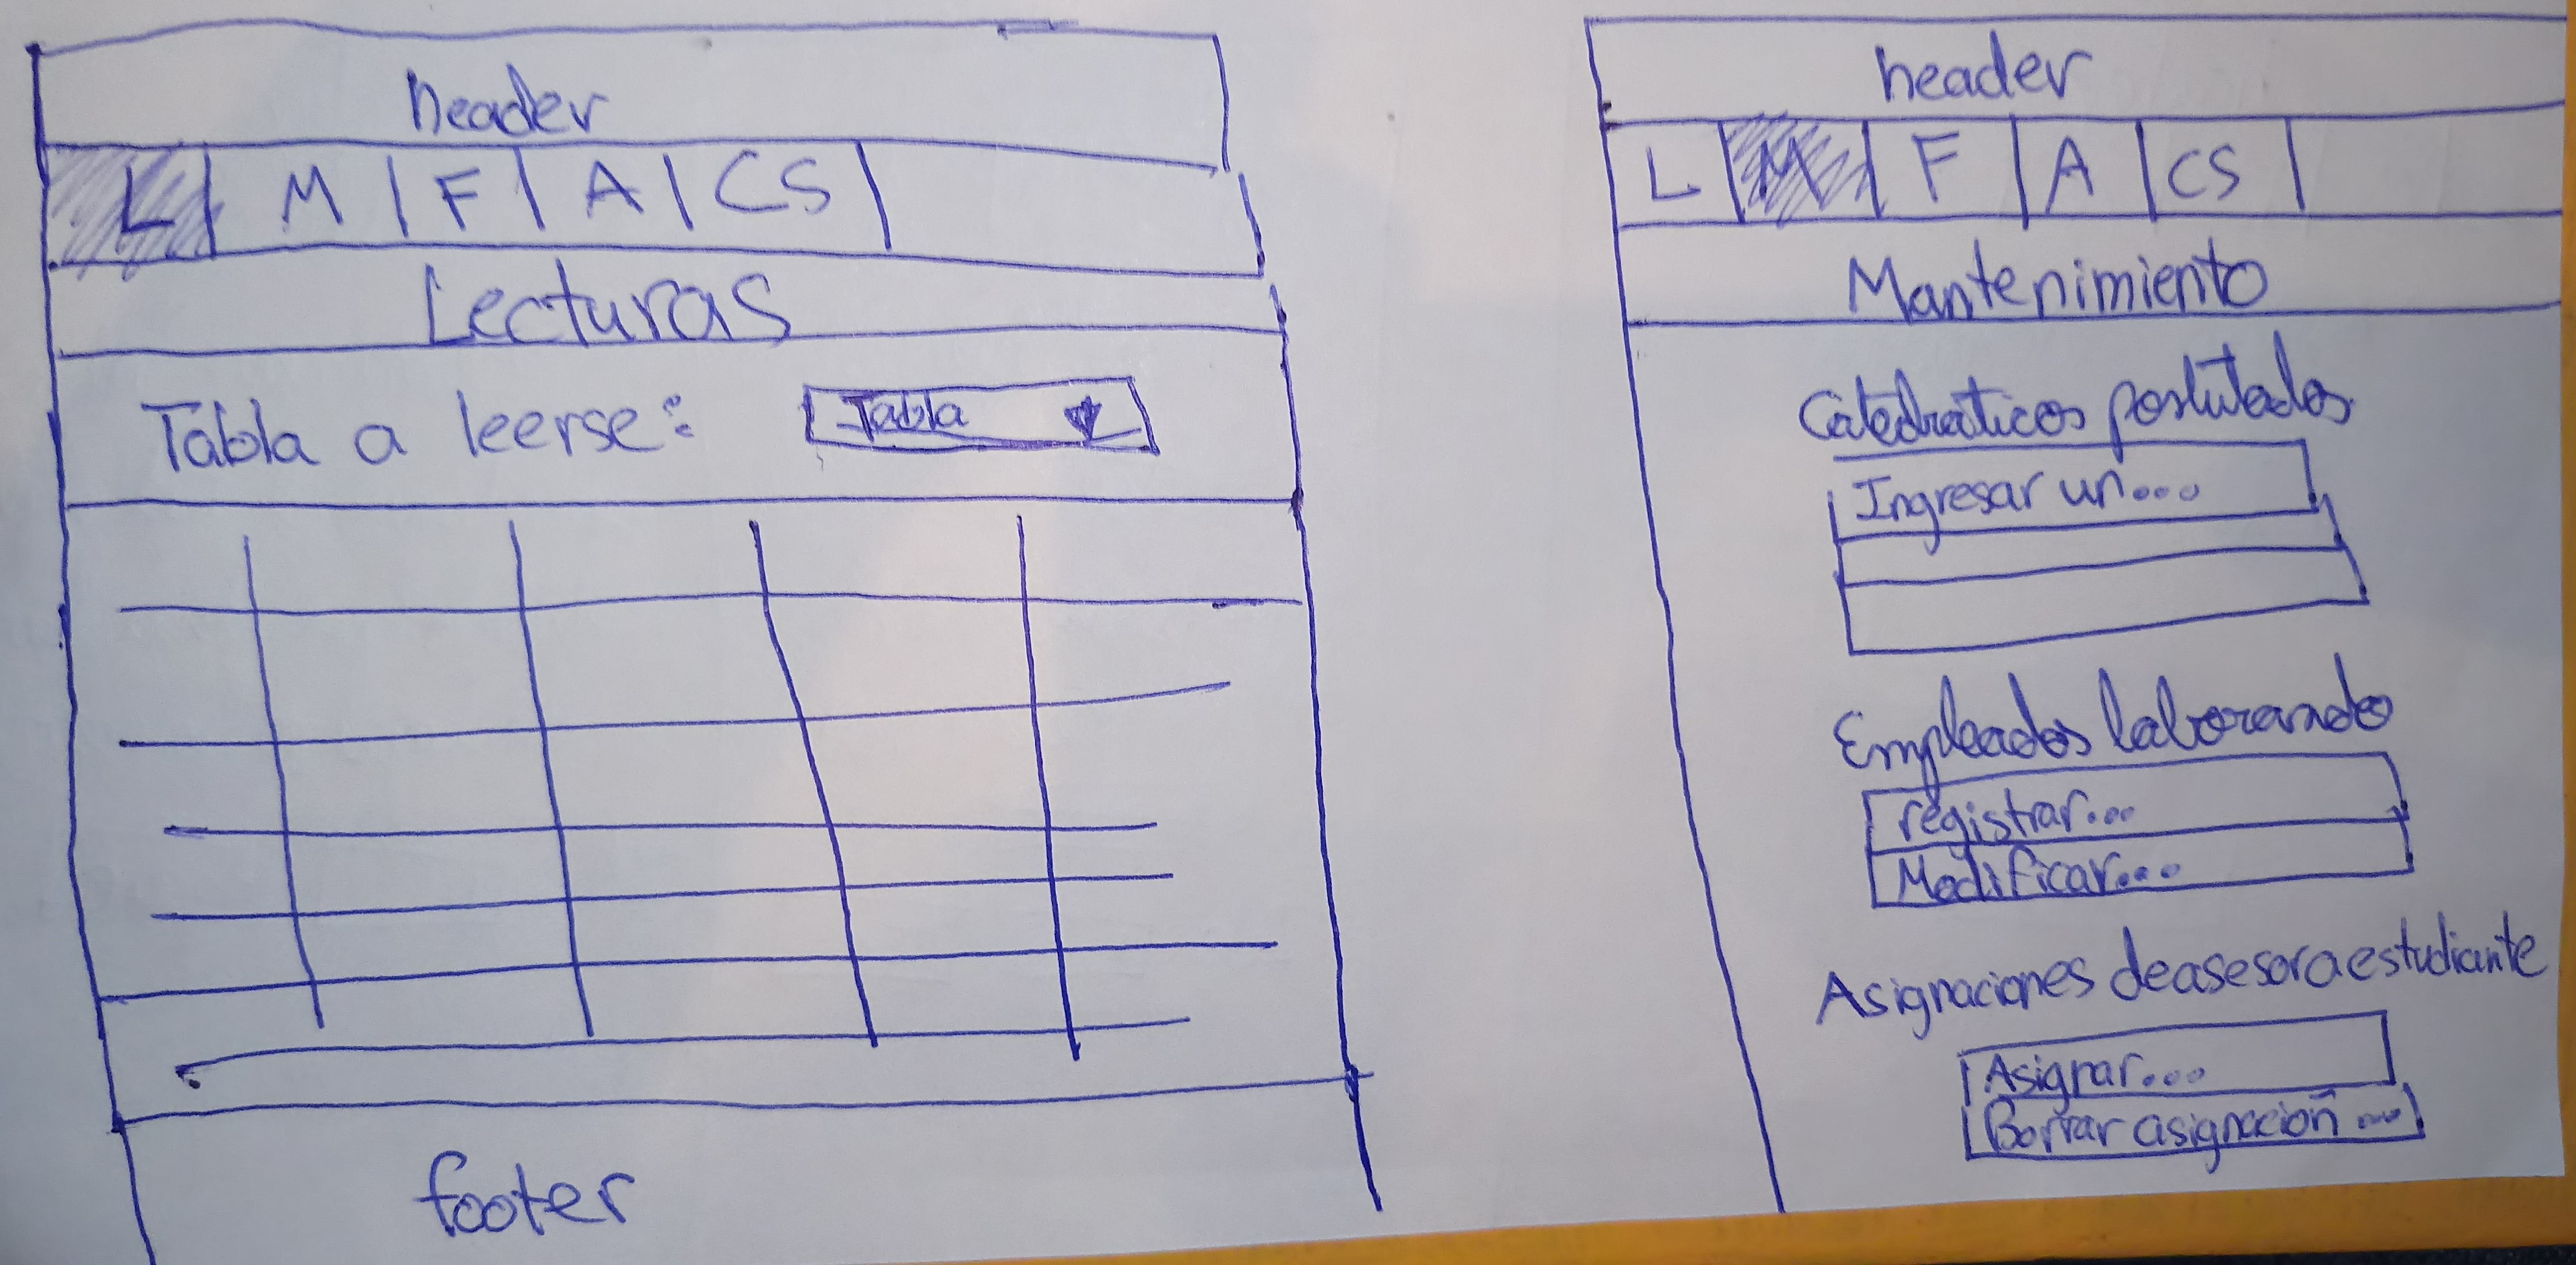 header
L M F A CS
Lecturas
Tabla a leerse: Tabla
footer
header
L M F A CS
Mantenimiento
Catedráticos postulados
Ingresar un...
Empleados laborando
registrar...
Modificar...
Asignaciones de asesor a estudiante
Asignar...
Borrar asignación ...